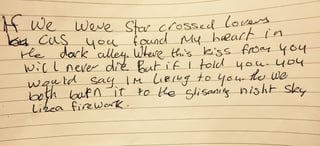 If we were Star crossed lovers
Cus you found My heart in
the dark alley. Where this kiss from you
will never die. But if I told you. you
would say Im lieing to you. tho we
both burn it to the glisanig night sky
Like a firework.